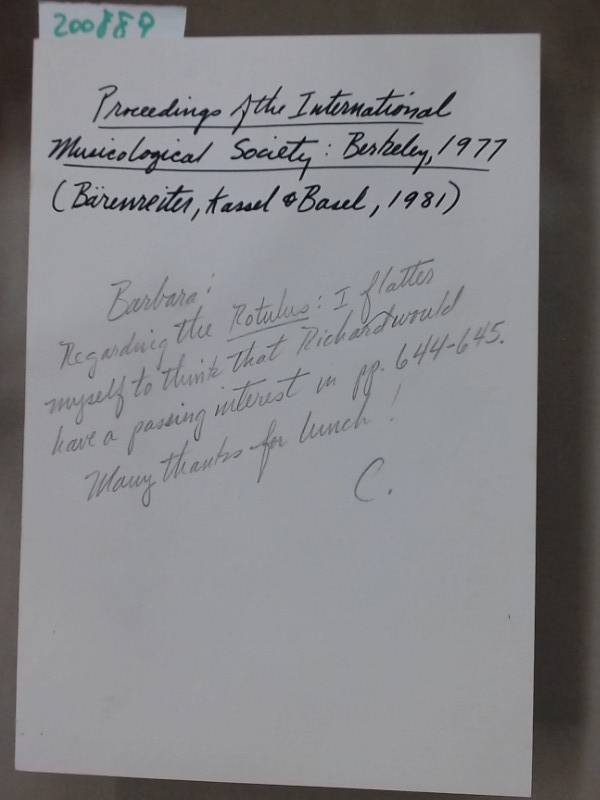 200889
Proceedings of the International
Musicological Society: Berkeley, 1977
(Bärenreiter, Kassel & Basel, 1981)
Barbara:
Regarding the Rotulus: I flatter
myself to think that Richard would
have a passing interest in pp. 644-645.
Many thanks for lunch!
C.